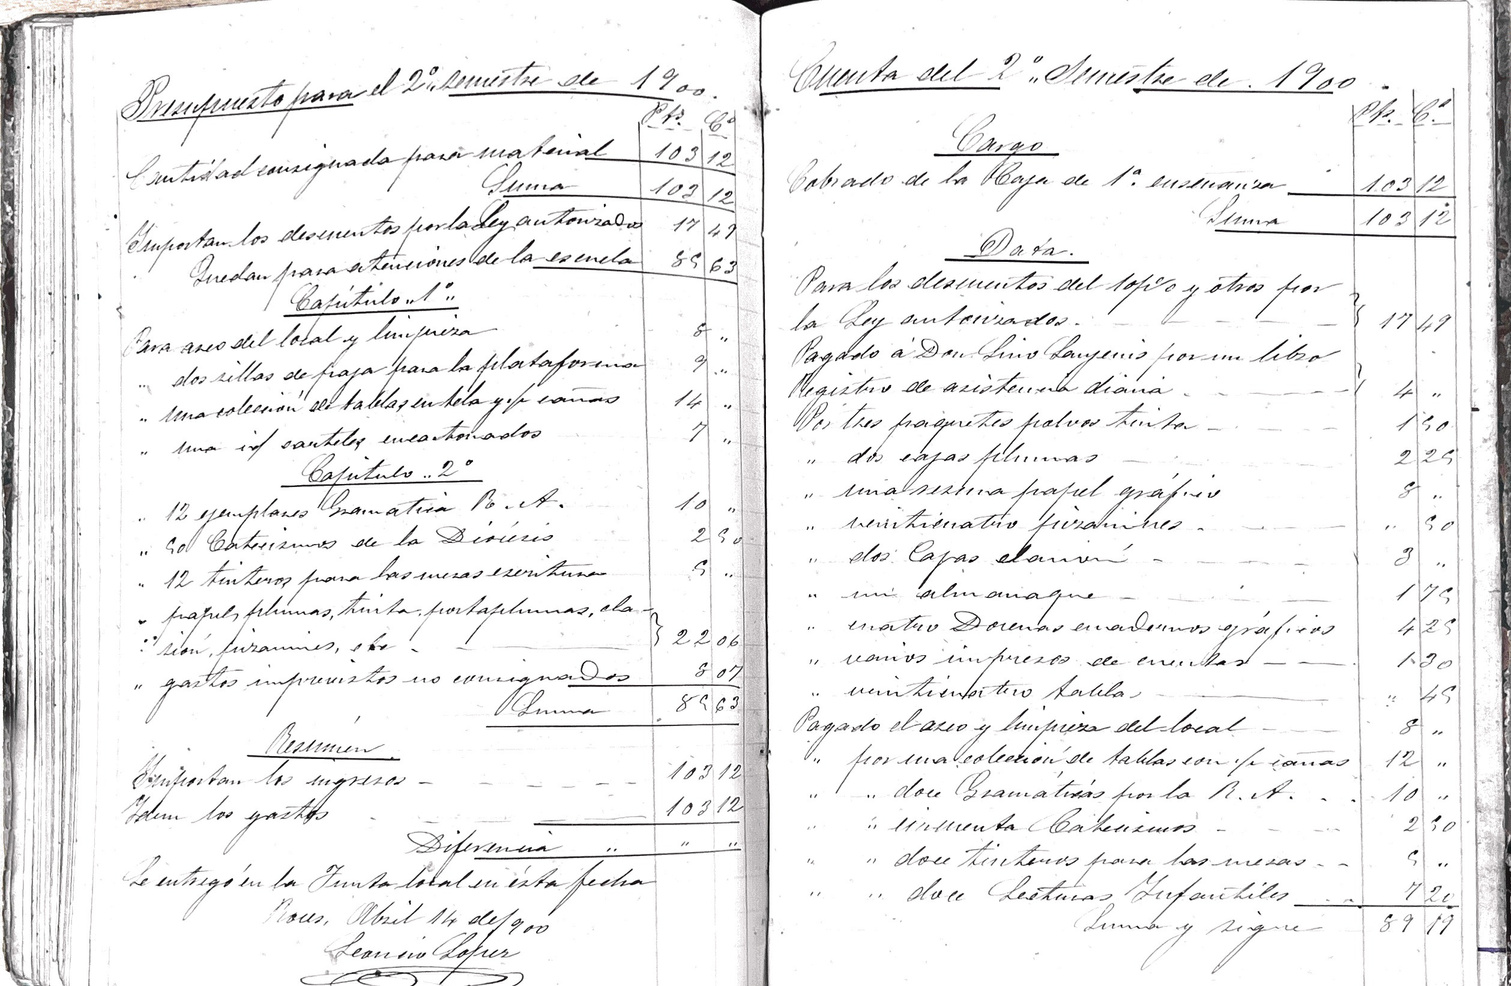 Presupuesto para el 2º. semestre de 1900.
Pts. Cs
Cantidad consignada para material 103 12
Suma 103 12
Importan los descuentos por la Ley autorizados 17 49
Quedan para atenciones de la escuela 85 63
Capítulo "1º"
Para aseo del local y limpieza 8 "
" dos sillas de paja para la plataforma 9 "
" una colección de tablas en tela y p cañas 14 "
" una id carteles encartonados 7 "
Capítulo "2º
" 12 ejemplares Gramática R. A. 10 "
" 50 Catecismos de la Diócesis 2 50
" 12 tinteros para las mesas escritura 5 "
" papel, plumas, tinta, portaplumas, cla-
" rión, pizarrines, etc 22 06
" gastos imprevistos no consignados 8 07
Suma 85 63
Resúmen
Importan los ingresos 103 12
Idem los gastos 103 12
Diferencia " " "
Se entregó en la Junta local en ésta fecha
Abril 14 de 1900
Leoncio López
Cuenta del 2º. Semestre de 1900.
Pts. Cs
Cargo
Cobrado de la Caja de 1ª. enseñanza 103 12
Suma 103 12
Data.
Para los descuentos del 10 p% y otros por
la Ley autorizados. 17 49
Pagado á Don Lino por un libro
Registro de asistencia diaria 4 "
Por tres paquetes polvos tinta 1 50
" dos cajas plumas 2 25
" una resma papel gráfico 8 "
" veinticuatro pizarrines " 50
" dos Cajas clarión 3 "
" un almanaque 1 75
" cuatro Docenas cuadernos gráficos 4 25
" varios impresos de cuentas 1 30
" veinticuatro tablas " 45
Pagado el aseo y limpieza del local 8 "
" por una colección de tablas con p cañas 12 "
" " doce Gramáticas por la R. A. 10 "
" " cincuenta Catecismos 2 50
" " doce tinteros para las mesas 5 "
" " doce Lecturas Infantiles 7 20
Suma y sigue 89 19